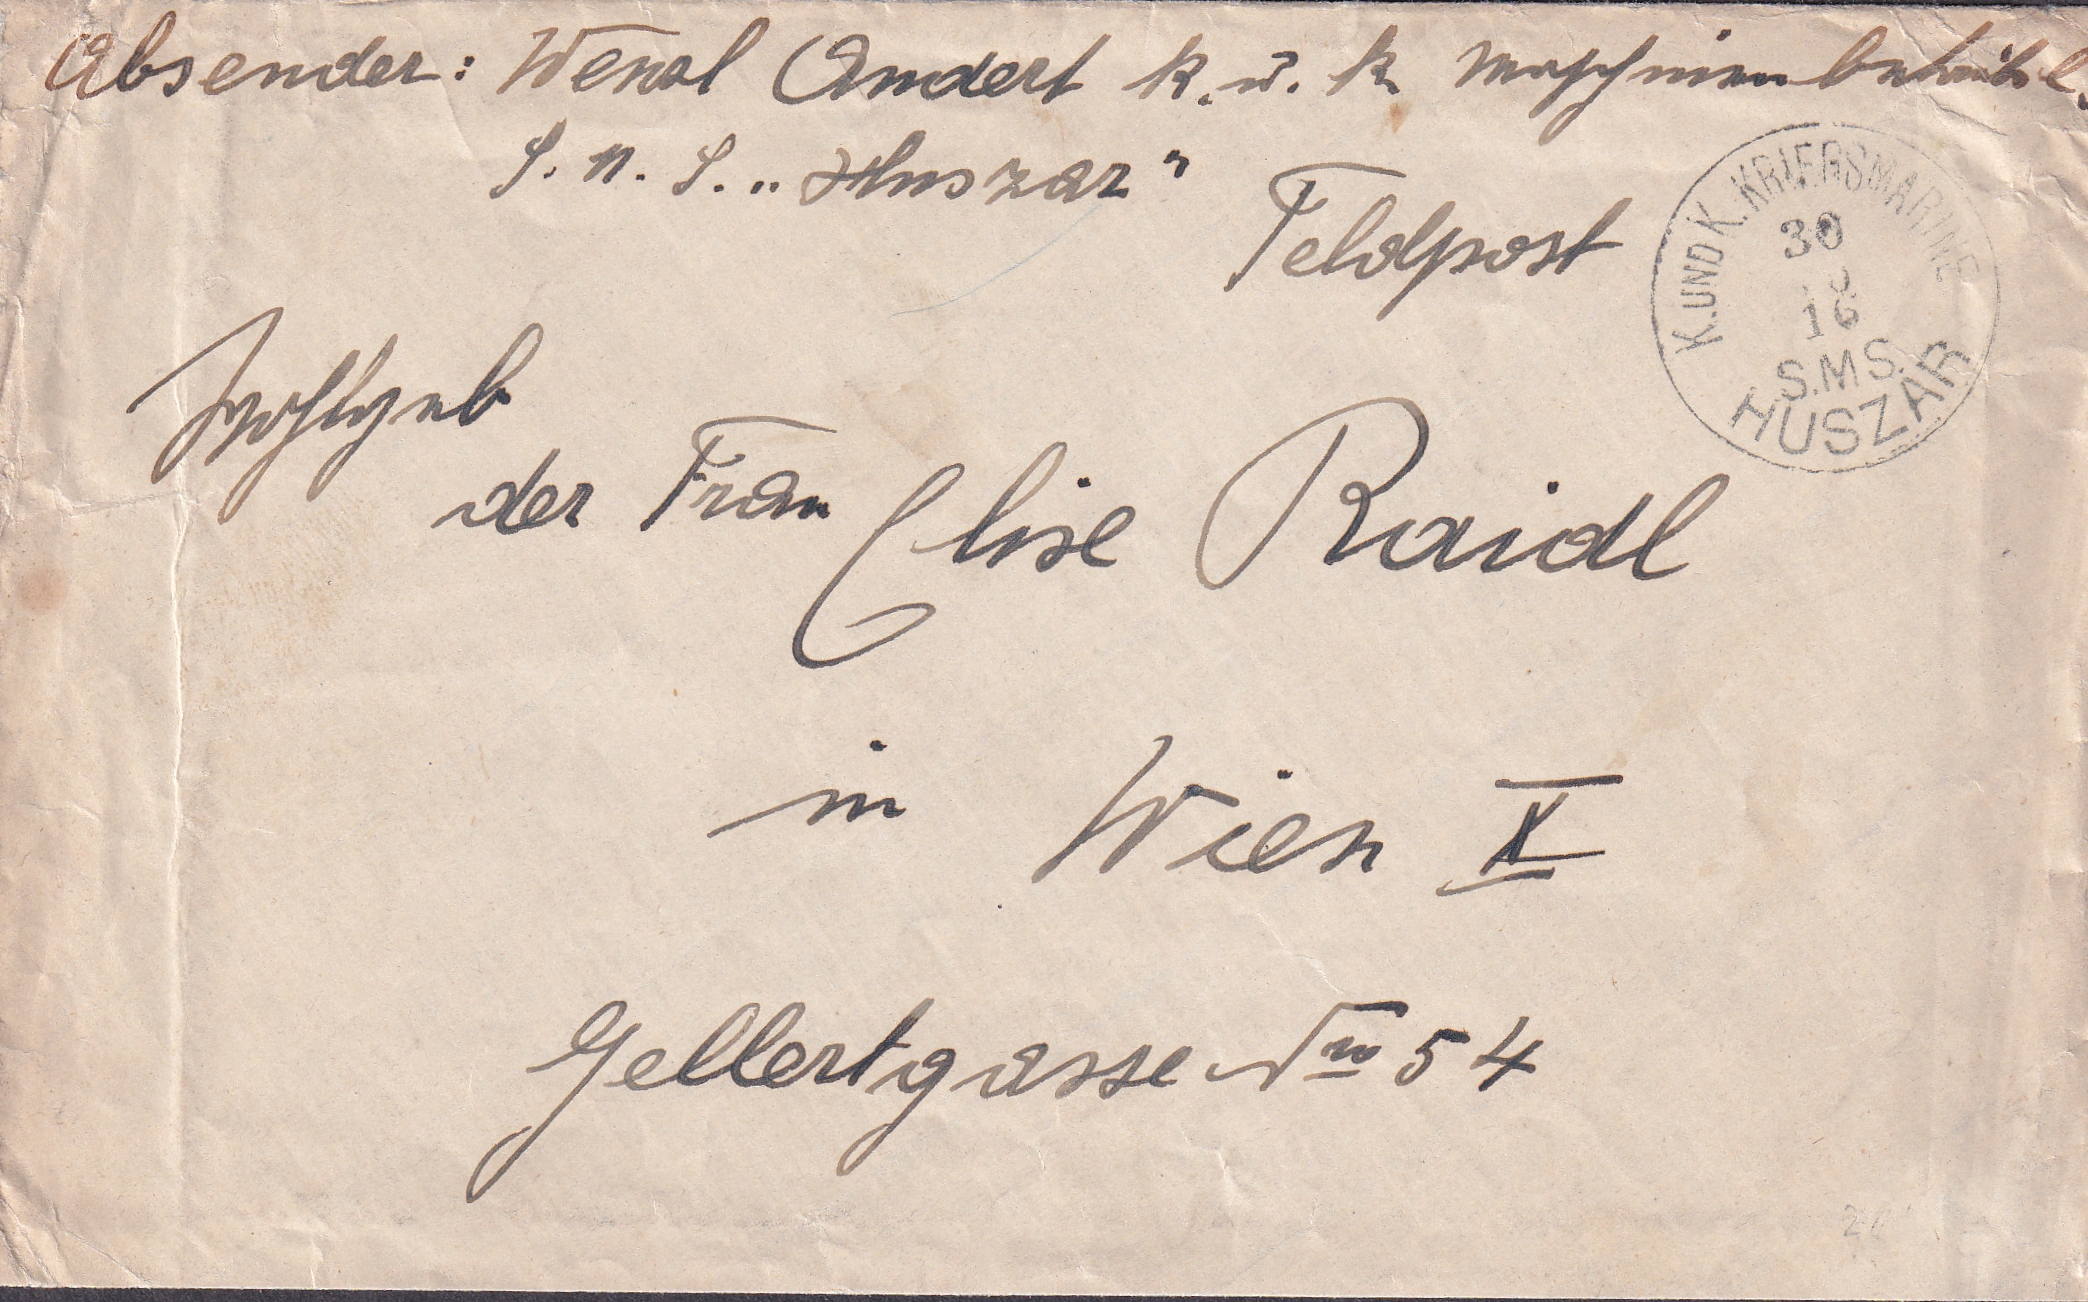 Absender: Wenzl Andert k. u. k. Maschinenbetriebsl.
S. M. S. „Huszar"
Feldpost
K. UND K. KRIEGSMARINE
30
16
S.M.S.
HUSZÁR
Wohlgeb
der Frau Elise Raidl
in Wien X
Gellertgasse Nro 54